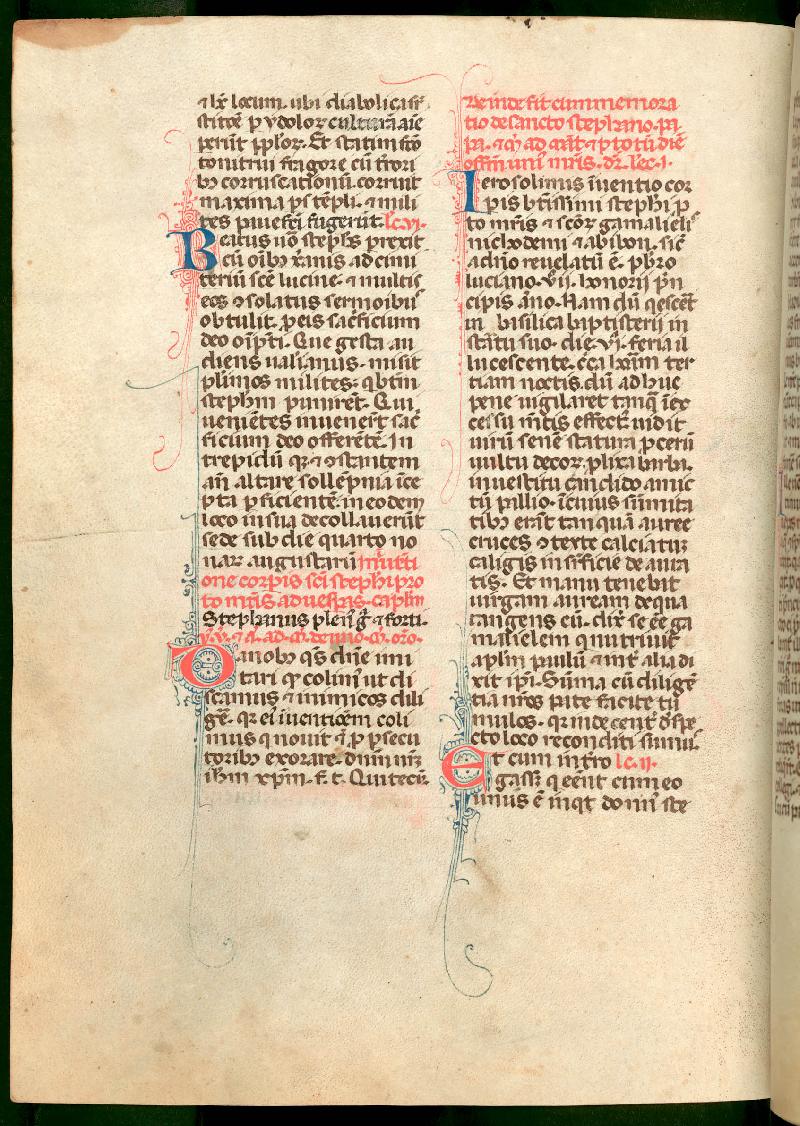 ⁊ lx̄ locum. ubi diabolica ſr̄
ſtitōē ꝑ ydolor̄ culturā aīe
perīt pp̄lor̄. Et ſtatim fc̄o
tonitrui fragore cū trori
bꝫ corruſcationū. corruit
maxima ꝑs tēpli. ⁊ mili
tes pauefc̄i fugerūt. lc̄. vi.
Beatus uō ſteph̄s ꝑrexit
cū oībꝫ xr̄anis ad cimi
teriū ſc̄e lucine. ⁊ multis
eos ꝯſolatus ſermoibus
obtulit. ꝑ eis ſac̄ficium
deo oīpt̄i. Que geſta au
diens ualianus. miſit
plimos milites. q̄ btm̄
ſtephm̄ punirēt. Qui
ueniētes inuener̄t ſac̄
ficium deo offerētē. In
trepidū qꝫ ⁊ ꝯſtantem
an̄ altare ſollēpnia īce
pta ꝑficientē. in eodem
loco in ſua decollauerūt
ſede ſub die quarto no
nar̄ auguſtarū. In īuēti
one corpis ſc̄i ſtephī pro
to mr̄is. ad veſpas. caplm̄
Stephanus plen⁹ gr̄a ⁊ forti.
ꝟ. ꝟ. ⁊ a. ad m̄. de p̄mo. m̄. oro.
Da nobꝫ q̄s dn̄e imi
tari qḋ colim⁹ ut di
ſcamus ⁊ inimicos dili
gē. qꝛ ei⁹ īuentiōem coli
mus q̄ nouit ⁊ ꝓ ꝑſecu
toribꝫ exorare. dnm̄ nr̄m
ihm̄ xpm̄. f. t. Qui tecū.
Deinde fit cūmemora
tio de ſancto ſtephano. pa
pa. ⁊ m̄. ad an̄t. ⁊ ꝑ totū diē
offm̄ uni⁹ mr̄is. dr̄. lec. i.
Ieroſolimis īuentio cor
pis btīſſimi ſtephī ꝓ
to mr̄is ⁊ ſc̄or̄ gamalielis
nichodemi ⁊ abibon. ſic̄
a dn̄o reuelatū ē. pbr̄o
luciano. vii. honorii pn̄
cipis āno. Nam dū q̄eſcēt
in baſilica baptiſterii in
ſtātu ſuo. die. vi. feria il
luceſcente. cc̄a horā ter
tiam noctis. dū adhuc
pene uigilaret tanq̄ īex
ceſſu mn̄tis effect⁹. uidit
uirū ſenē ſtatura ꝓcerū
uultu decor̄. plixa barba.
in ueſtitu candido amic
tū pallio. ic̄uius ſūmita
tibꝫ erāt tanquā auree
cruces ꝯtexte calciatuꝫ
caligis in ſrficie de aura
tis. Et manu tenebat
uirgam auream de qua
tangens eū. dix̄. ſe eē ga
malielem q̄ nutriuit
aplm̄ paulū ⁊ int̄ alia di
xit ipi. Sūma cū diligē
tia nr̄os pate facite tu
mulos. qꝛ indecent̄ deſpe
cto loco reconditi ſumus.
Et cum intro lc̄. ii.
gaſſꝫ q̄ eēnt cum eo
unus ē inq̄t dom⁹ ſte